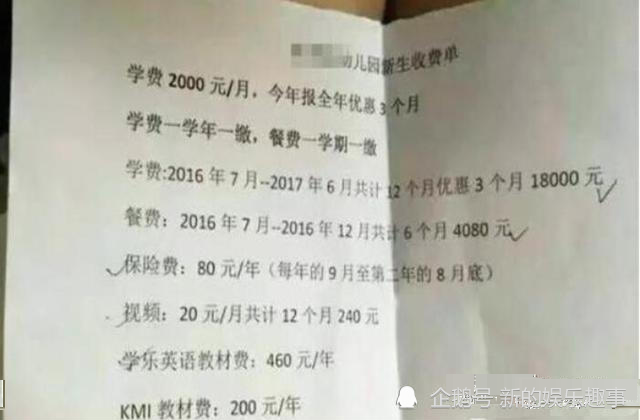 幼儿园新生收费单
学费 2000 元/月，今年报全年优惠 3 个月
学费一学年一缴，餐费一学期一缴
学费:2016 年 7 月--2017 年 6 月共计 12 个月优惠 3 个月 18000 元
餐费：2016 年 7 月--2016 年 12 月共计 6 个月 4080 元
保险费：80 元/年（每年的 9 月至第二年的 8 月底）
视频：20 元/月共计 12 个月 240 元
学乐英语教材费：460 元/年
KMI 教材费：200 元/年
企鹅号·新的娱乐趣事